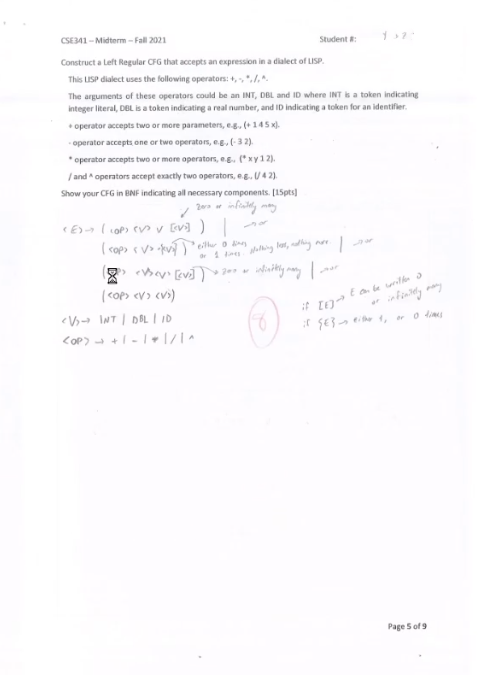 CSE341 – Midterm – Fall 2021 Student #:
Construct a Left Regular CFG that accepts an expression in a dialect of LISP.
This LISP dialect uses the following operators: +, -, *, /, ^.
The arguments of these operators could be an INT, DBL and ID where INT is a token indicating
integer literal, DBL is a token indicating a real number, and ID indicating a token for an identifier.
+ operator accepts two or more parameters, e.g., (+ 1 4 5 x).
- operator accepts one or two operators, e.g., (- 3 2).
* operator accepts two or more operators, e.g., (* x y 1 2).
/ and ^ operators accept exactly two operators, e.g., (/ 4 2).
Show your CFG in BNF indicating all necessary components. [15pts]
zero or infinitely many
<E> → ( <OP> <V> V [<V>] ) | → or
(<OP> <V> {<V>}) either 0 times nothing less, nothing more | → or
or 1 times
<V> <V> [<V>] ) → zero or infinitely many | → or
(<OP> <V> <V>)
if [E] → E can be written 0
or infinitely many
<V> → INT | DBL | ID
if {E} → either 1, or 0 times
<OP> → + | - | * | / | ^
8
Page 5 of 9